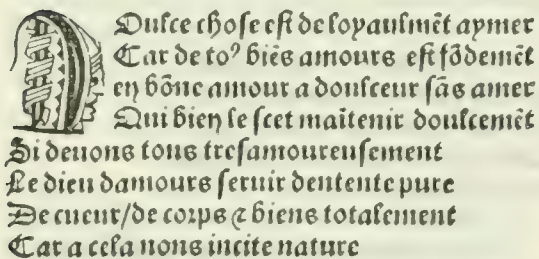 DOulce chose est de loyaulmẽt aymer
Car de to⁹ biẽs amours est fõdemẽt
en bõne amour a doulceur sãs amer
Qui bien le scet maĩtenir doulcemẽt
Si deuons tous tresamoureusement
Le dieu damours seruir dentente pure
De cueur/de corps ⁊ biens totalement
Car a cela nous incite nature